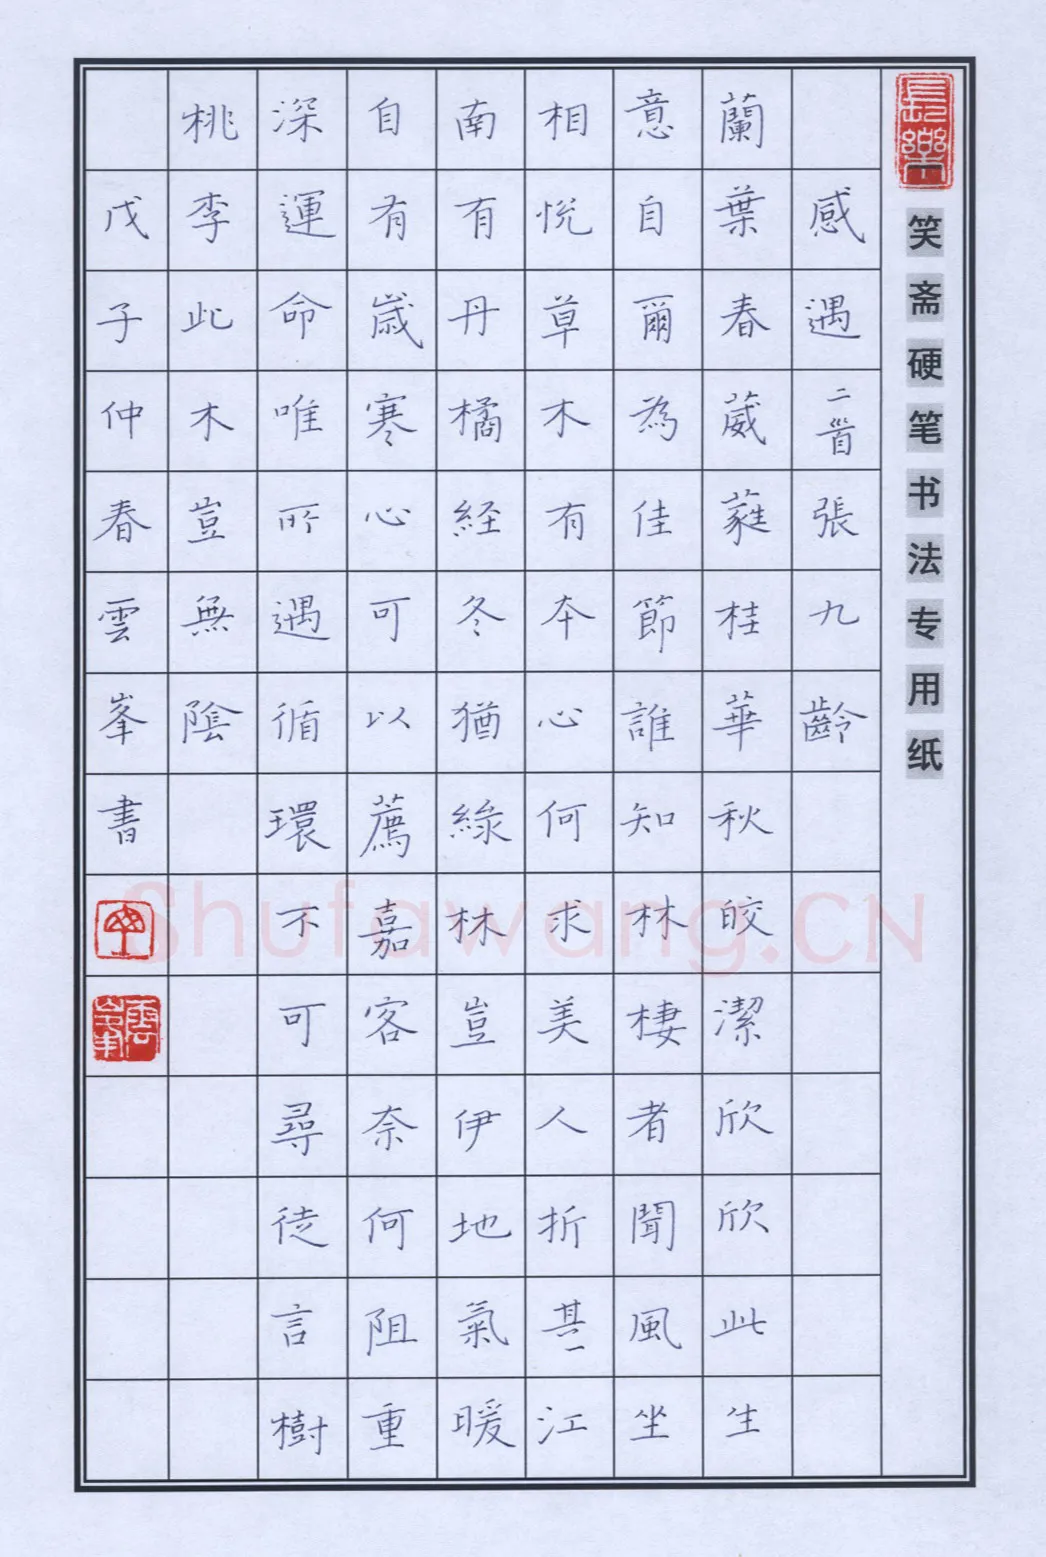 長樂
笑斋硬笔书法专用纸
感遇二首張九齡
蘭葉春葳蕤桂華秋皎潔欣欣此生
意自爾為佳節誰知林棲者聞風坐
相悅草木有本心何求美人折其一江
南有丹橘経冬猶綠林豈伊地氣暖
自有歲寒心可以薦嘉客奈何阻重
深運命唯所遇循環不可尋徒言樹
桃李此木豈無陰
戊子仲春雲峯書
Shufawang.CN